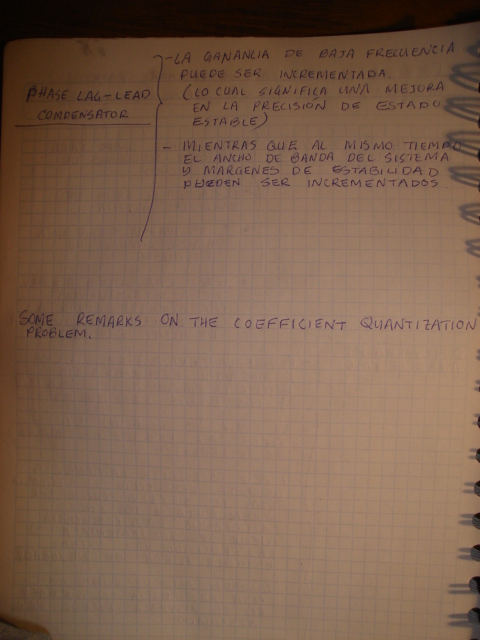 PHASE LAG-LEAD
COMPENSATOR
-LA GANANCIA DE BAJA FRECUENCIA
PUEDE SER INCREMENTADA.
(LO CUAL SIGNIFICA UNA MEJORA
EN LA PRECISIÓN DE ESTADO
ESTABLE)
- MIENTRAS QUE AL MISMO TIEMPO
EL ANCHO DE BANDA DEL SISTEMA
Y MARGENES DE ESTABILIDAD
PUEDEN SER INCREMENTADOS
SOME REMARKS ON THE COEFFICIENT QUANTIZATION
PROBLEM.